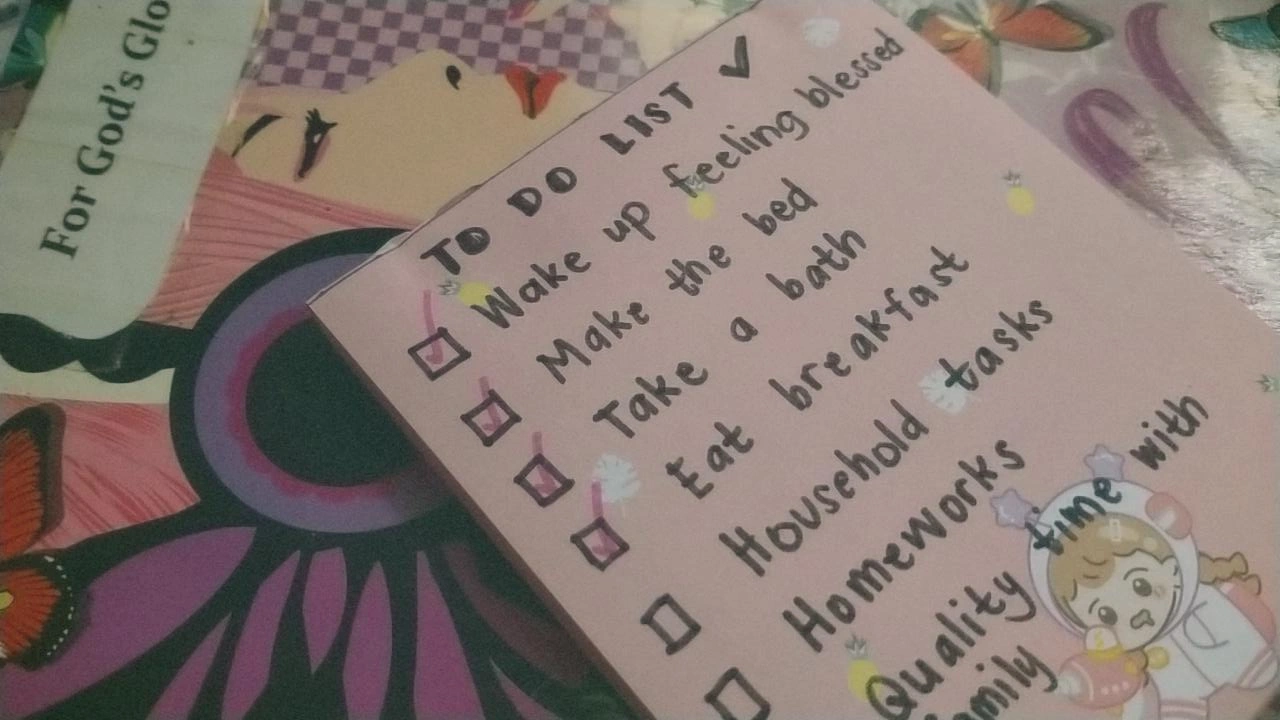 For God's Glo
TO DO LIST ✓
Wake up feeling blessed
Make the bed
Take a bath
Eat breakfast
Household tasks
Homeworks
Quality time with
family